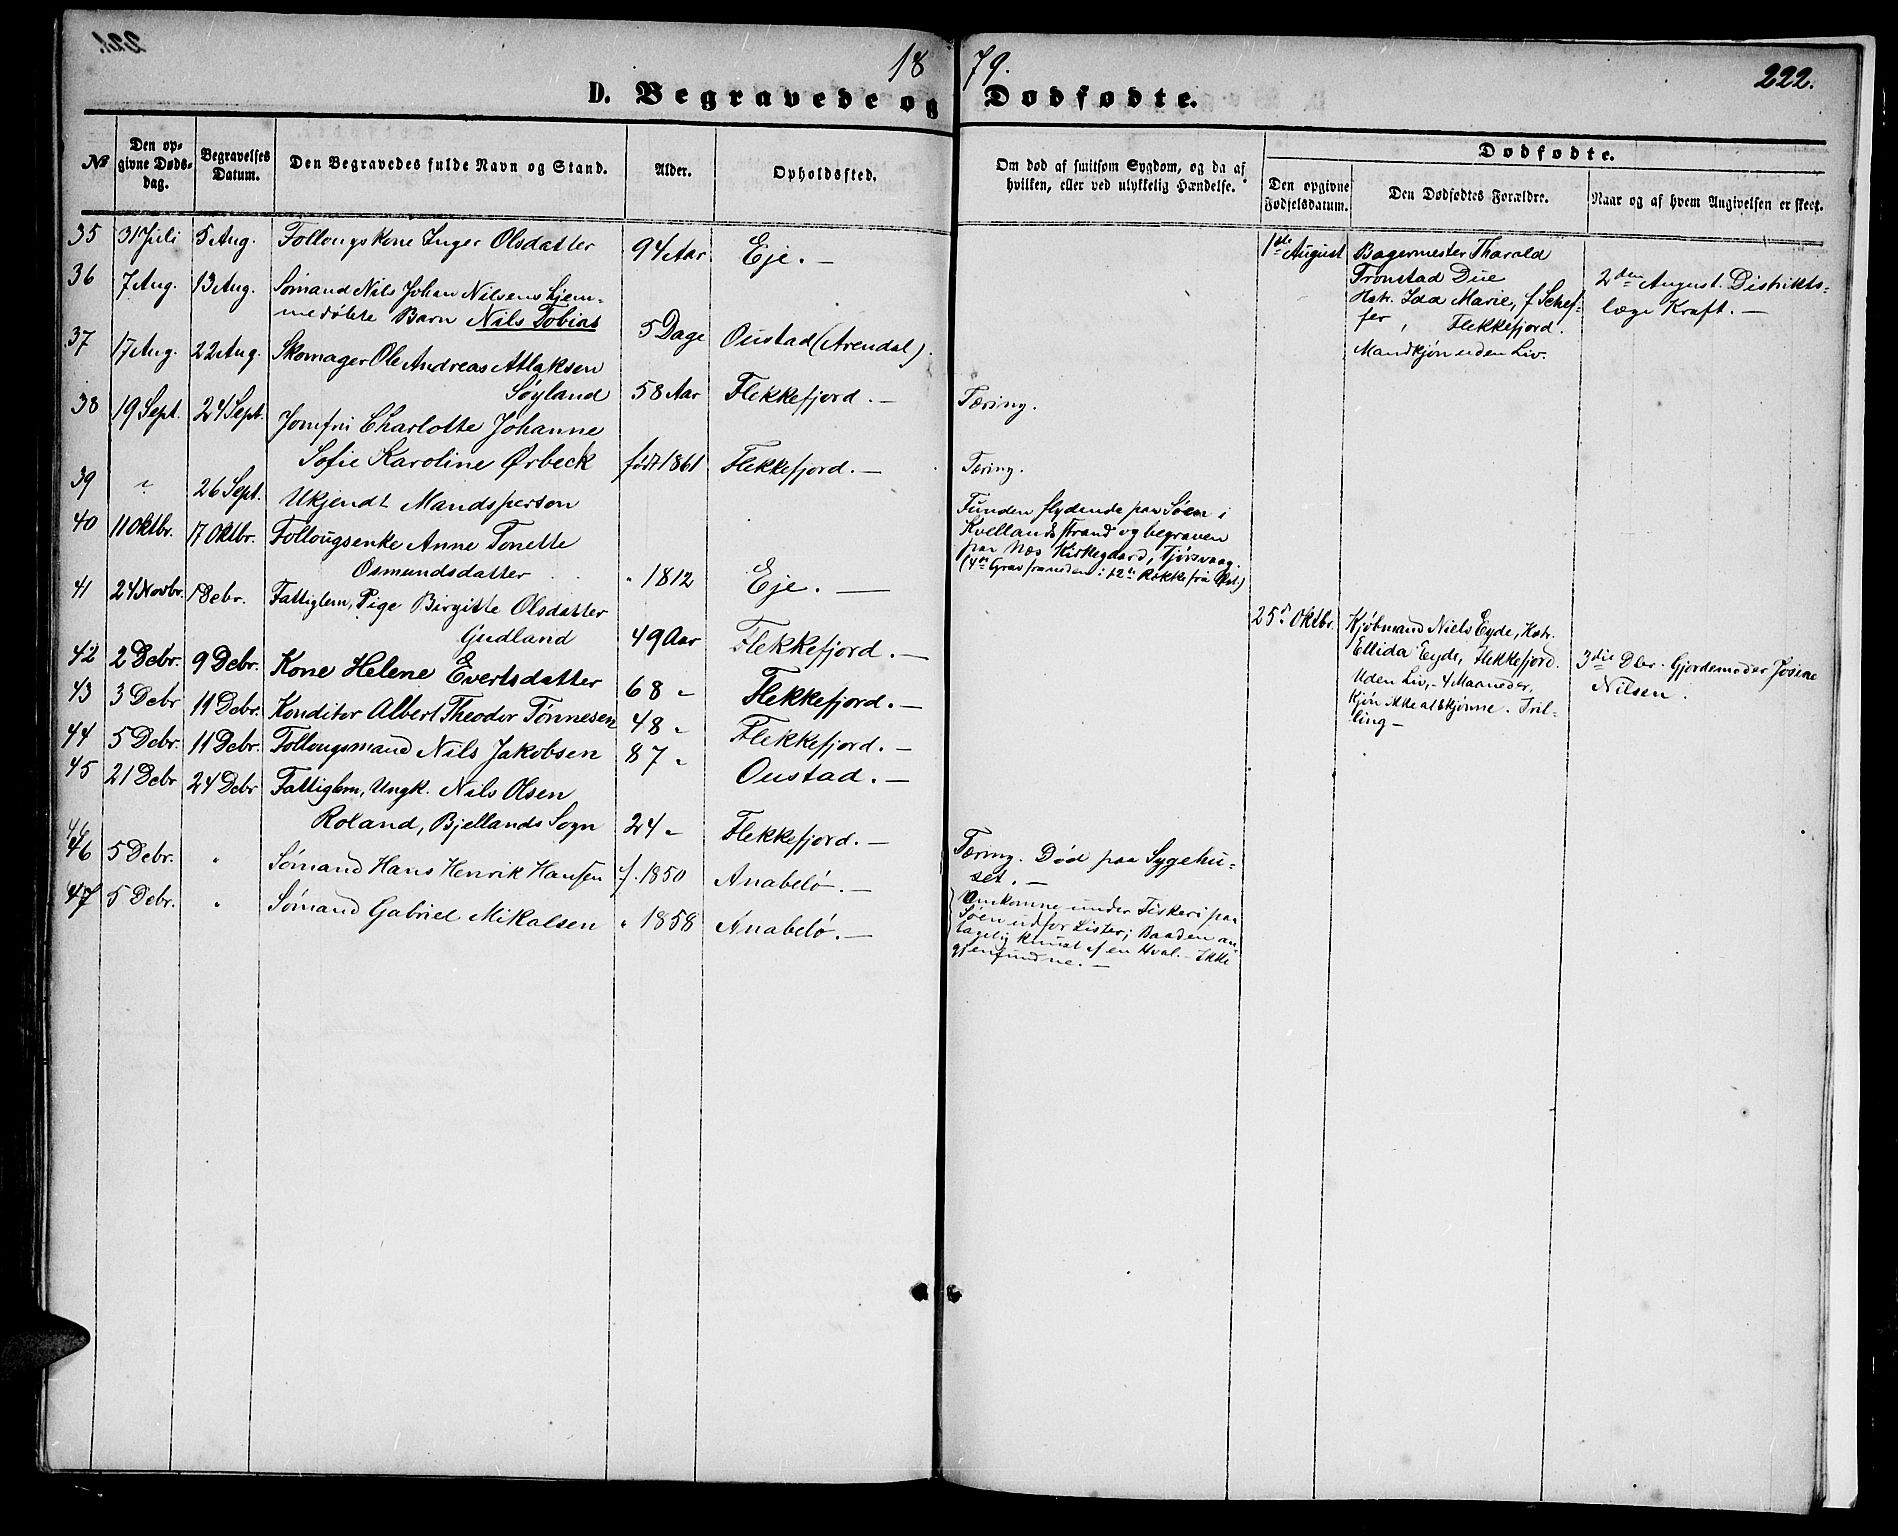 221.
18 79.
222.
D. Begravede og Dødfødte.
№
Den op-
givne Døds-
dag.
Begravelses
Datum.
Den Begravedes fulde Navn og Stand.
Alder.
Opholdssted.
Om død af smitsom Sygdom, og da af
hvilken, eller ved ulykkelig Hændelse.
Dødfødte.
Den opgivne
Fødselsdatum.
Den Dødfødtes Forældre.
Naar og af hvem Angivelsen er skeet.
35 31 Juli 5 Aug. Føllougskone Inger Olsdatter 94 Aar Eje. —
36 7 Aug. 13 Aug. Sømand Nils Johan Nilsens hjem-
medøbte Barn Nils Tobias 5 Dage Oustad (Arendal).
37 17 Aug. 22 Aug. Skomager Ole Andreas Atlaksen
Søyland 58 Aar Flekkefjord. — Tæring.
38 19 Sept. 24 Sept. Jomfru Charlotte Johanne
Sofie Karoline Ørbeck født 1861 Flekkefjord. — Tæring.
39 " 26 Sept. Ukjendt Mandsperson
Funden flydende paa Søen i
Kvellandsstrand og begraven
paa Næs Kirkegaard, Tjørsvaag.
(4de Grav fra neden i 12te Række fra Øst.)
40 11 Oktbr. 17 Oktbr. Føllougsenke Anne Tonette
Osmundsdatter " 1812 Eje. —
41 24 Novbr. 1 Debr. Fattiglem, Pige Birgitte Olsdatter
Gudland 49 Aar Flekkefjord. —
42 2 Debr. 9 Debr. Kone Helene Evertsdatter 68 " Flekkefjord. —
43 3 Debr 11 Debr. Konditor Albert Theodor Tønnesen 48 " Flekkefjord. —
44 5 Debr. 11 Debr. Føllougsmand Nils Jakobsen 87 " Oustad. —
45 21 Debr 24 Debr Fattiglem, Ungk. Nils Olsen
Roland, Bjellands Sogn 24 " Flekkefjord. — Tæring. Død paa Sygehu-
set. —
46 5 Debr. " Sømand Hans Henrik Hansen f. 1850 Anabelø. —
47 5 Debr. " Sømand Gabriel Mikalsen " 1858 Anabelø. —
Omkomne under Fiskeri paa
Søen udfor Lister; Baaden an-
tagelig knust af en Hval. — Ikke
gjenfundne. —
1ste August Bagermester Tharald
Tronstad Due
Hstr. Ida Marie, f Schef-
fer, Flekkefjord.
Mandkjøn uden Liv.
2den August. Distrikts-
læge Kraft. —
25de Oktbr. Kjøbmand Niels Eyde, Hstr.
Ellida Eyde, Flekkefjord.
Uden Liv, - 4 Maaneder,
Kjøn ikke at skjønne. Tril-
ling —
3die Dbr. Gjordemoder Josine
Nilsen.